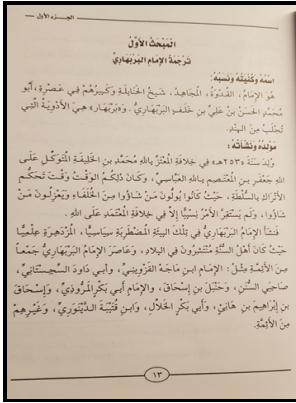 الجزء الأول
المَبْحَثُ الأَوَّلُ
تَرْجَمَةُ الإِمَامِ البَرْبَهَارِيِّ
اسْمُهُ وَكُنْيَتُهُ وَنَسَبُهُ:
هُوَ الإِمَامُ، القُدْوَةُ، المُجَاهِدُ، شَيْخُ الحَنَابِلَةِ وَكَبِيرُهُمْ فِي عَصْرِهِ، أَبُو
مُحَمَّدٍ الحَسَنُ بْنُ عَلِيِّ بْنِ خَلَفٍ البَرْبَهَارِيُّ. وَ«بَرْبَهَار» هِيَ الأَدْوِيَةُ الَّتِي
تُجْلَبُ مِنَ الهِنْدِ.
مَوْلِدُهُ وَنَشْأَتُهُ:
وُلِدَ سَنَةَ «٢٥٣هـ» فِي خِلَافَةِ المُعْتَزِّ بِاللهِ مُحَمَّدِ بْنِ الخَلِيفَةِ المُتَوَكِّلِ عَلَى
اللهِ جَعْفَرِ بْنِ المُعْتَصِمِ بِاللهِ العَبَّاسِيِّ، وَكَانَ ذَلِكُمُ الوَقْتُ وَقْتَ تَحَكُّمِ
الأَتْرَاكِ بِالسُّلْطَةِ، حَيْثُ كَانُوا يُوَلُّونَ مَنْ شَاؤُوا مِنَ الخُلَفَاءِ وَيَعْزِلُونَ مَنْ
شَاؤُوا، وَلَمْ يَسْتَقِرَّ الأَمْرُ نِسْبِيًّا إِلَّا فِي خِلَافَةِ المُعْتَمَدِ عَلَى اللهِ.
فَنَشَأَ الإِمَامُ البَرْبَهَارِيُّ فِي تِلْكَ البِيئَةِ المُضْطَرِبَةِ سِيَاسِيًّا، المُزْدَهِرَةِ عِلْمِيًّا
حَيْثُ كَانَ أَهْلُ السُّنَّةِ مُنْتَشِرُونَ فِي البِلَادِ، وَعَاصَرَ الإِمَامُ البَرْبَهَارِيُّ جَمْعاً
مِنَ الأَئِمَّةِ مِثْلُ: الإِمَامِ ابنِ مَاجَهْ القَزْوِينِيِّ، وَأَبِي دَاوُدَ السِّجِسْتَانِيِّ،
صَاحِبَيِ السُّنَنِ، وَحَنْبَلِ بنِ إِسْحَاقَ، والإِمَامِ أَبِي بَكْرٍ المَرُّوذِيِّ، وَإِسْحَاقَ
بنِ إِبْرَاهِيمَ بنِ هَانِئٍ، وَأَبِي بَكْرٍ الخَلَّالِ، وَابنِ قُتَيْبَةَ الدِّينَوَرِيِّ، وَغَيْرِهِمْ
مِنَ الأَئِمَّةِ.
١٣